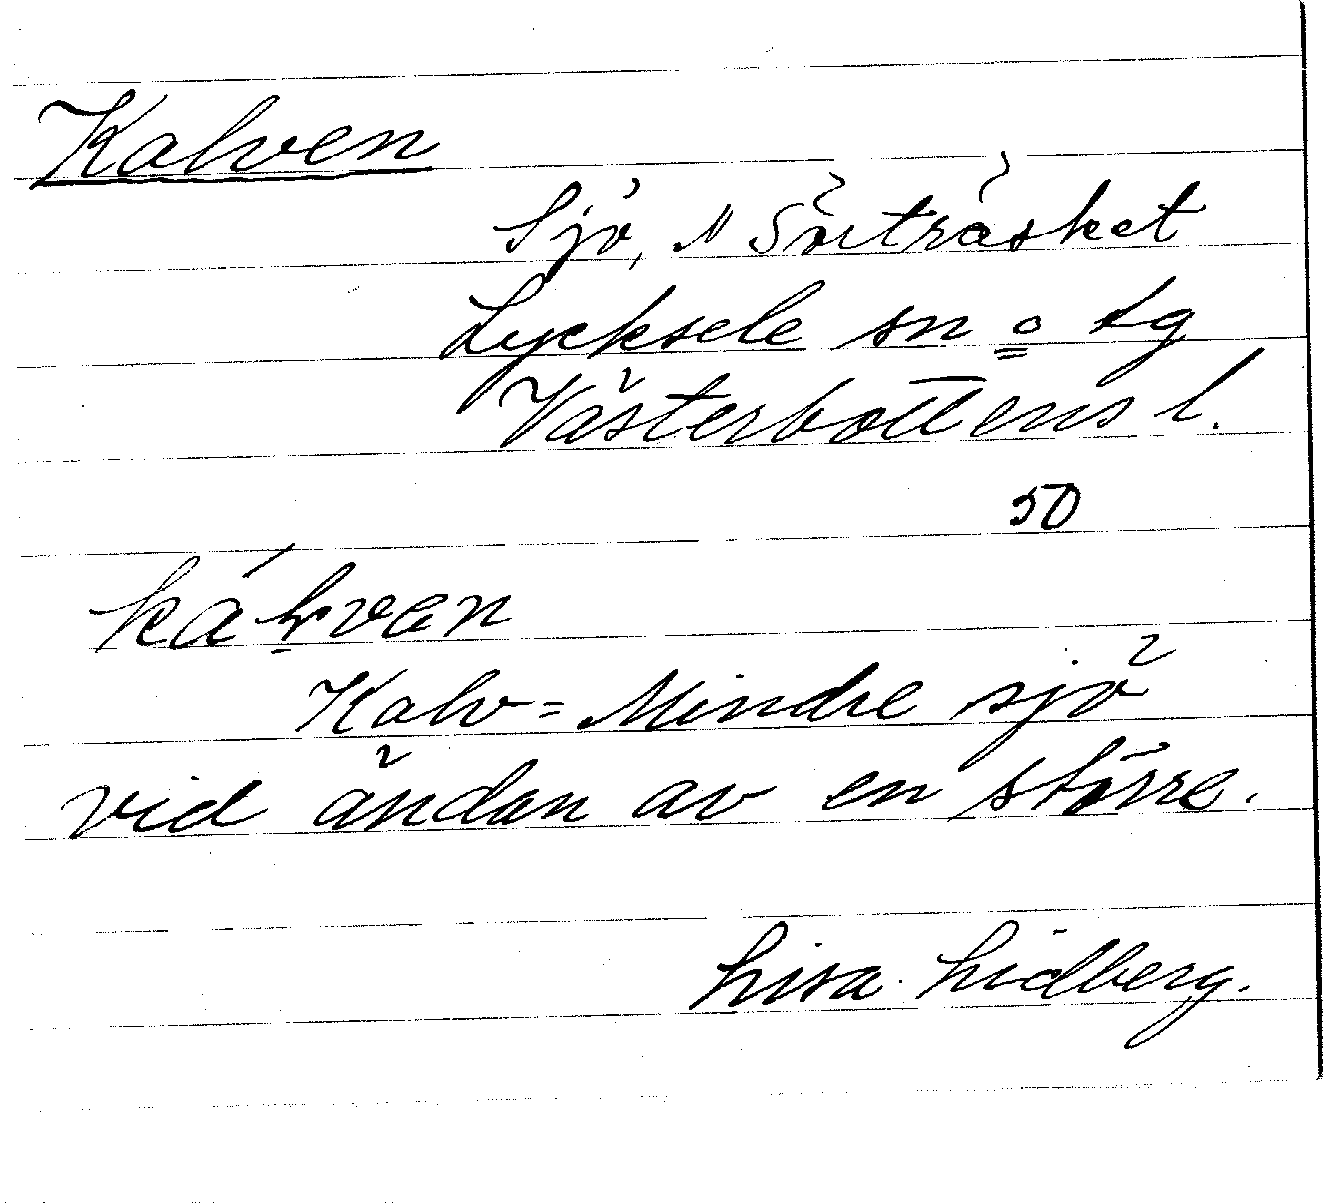 Kalven
Sjö, N Örträsket
Lycksele sn o lg
Västerbottens l.
50
kálvan
Kalv = Mindre sjö
vid ändan av en större.
Lisa Lidberg.